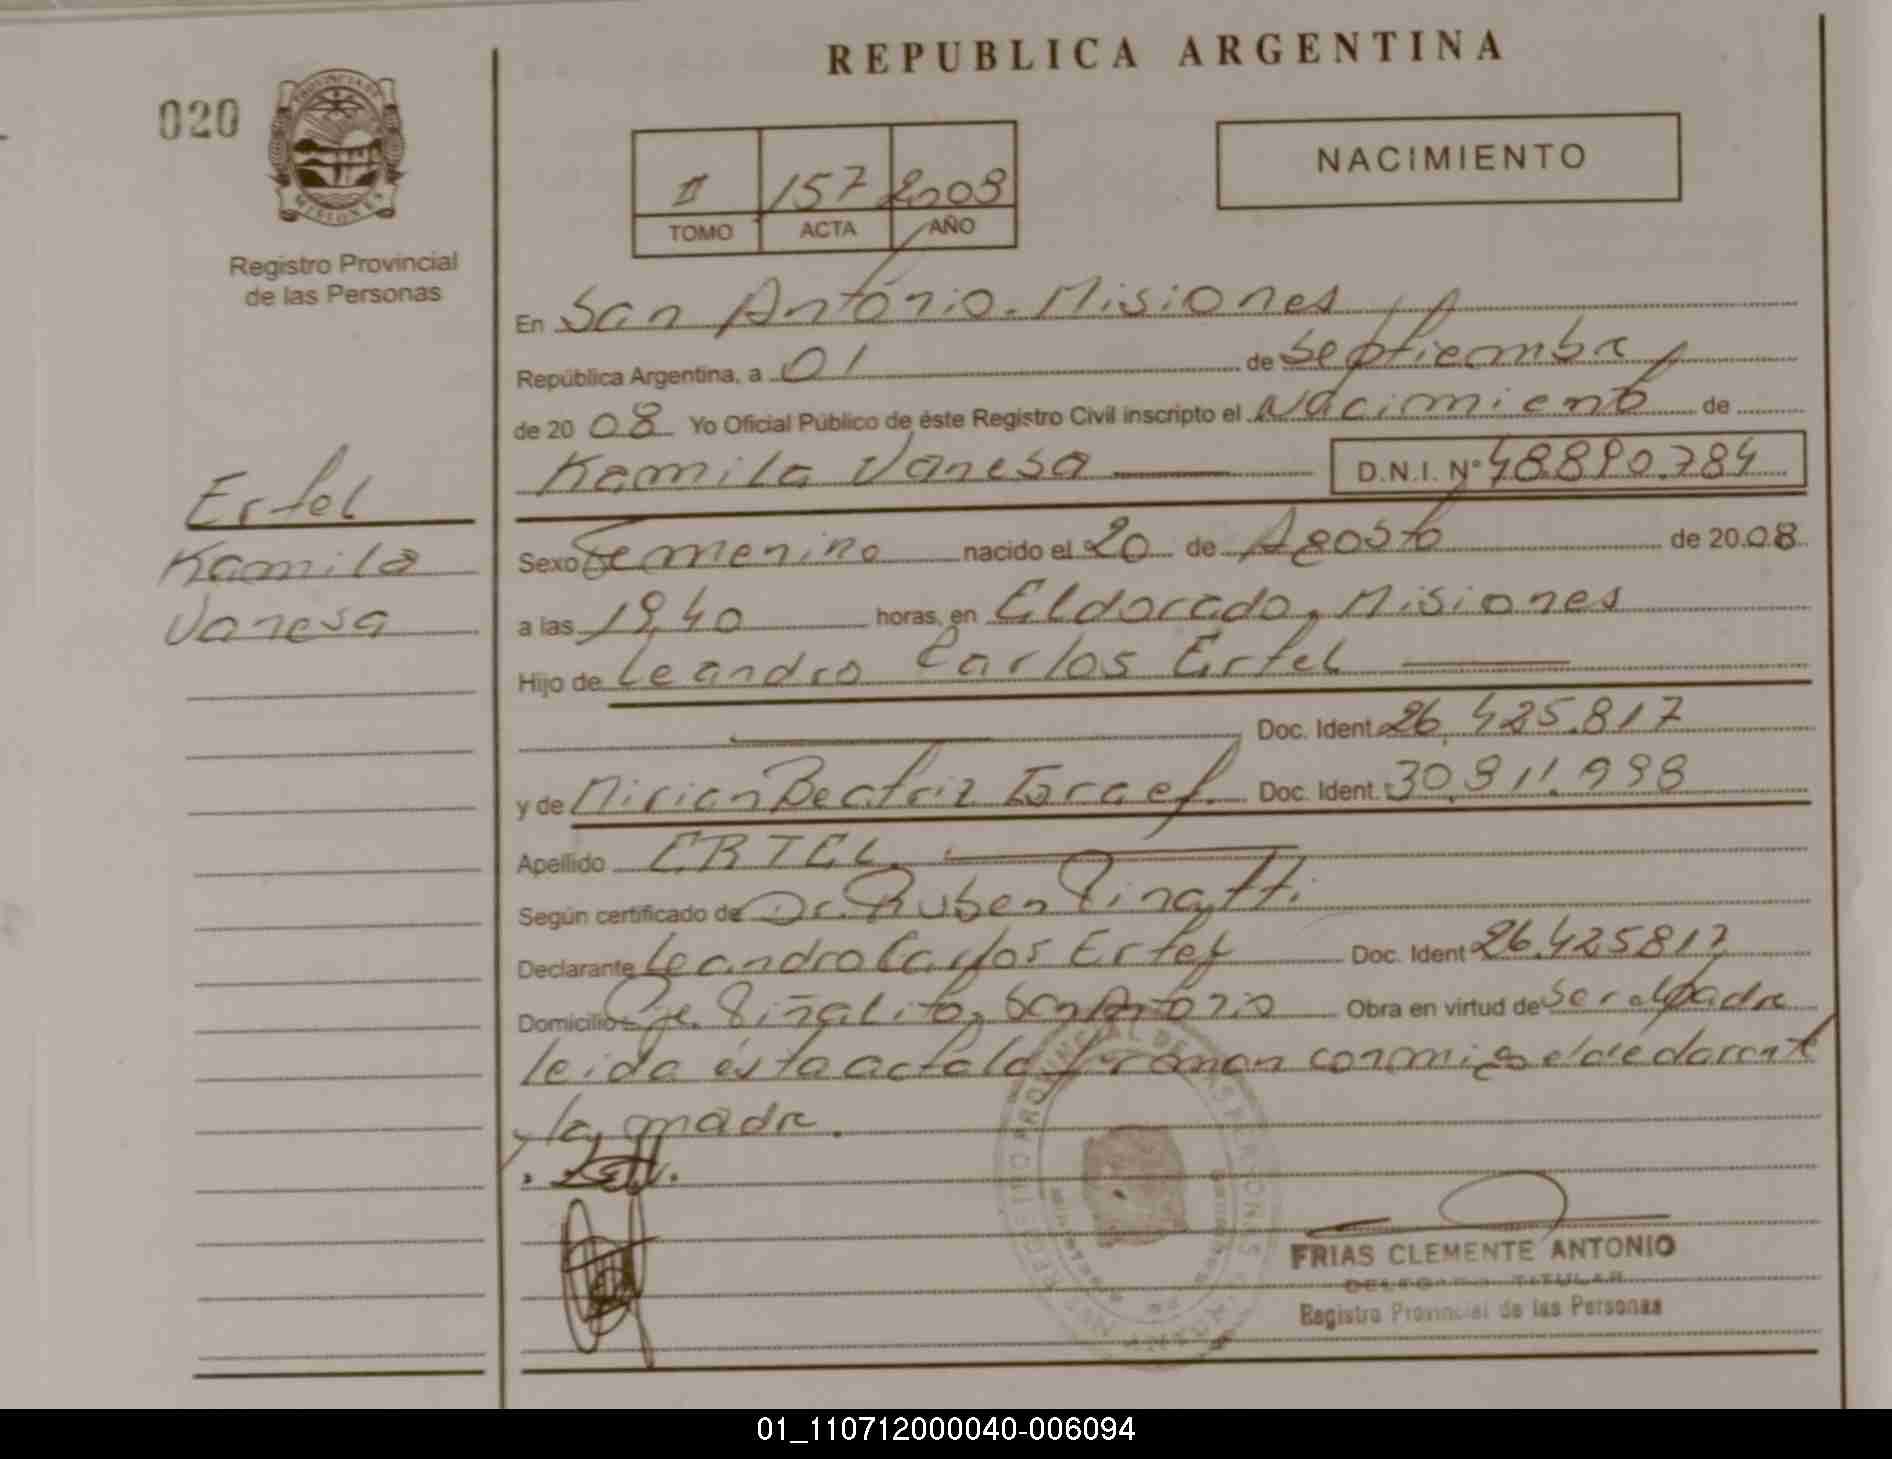 REPUBLICA ARGENTINA
020
PROVINCIA DE
MISIONES
Registro Provincial
de las Personas
II 157 2008
TOMO ACTA AÑO
NACIMIENTO
En San Antonio. Misiones
República Argentina, a 01 de Septiembre
de 20 08 Yo Oficial Público de éste Registro Civil inscripto el Nacimiento de
Kamila Vanesa D.N.I. Nº 48.890.784
Ertel
Kamila
Vanesa
Sexo Femenino nacido el 20 de Agosto de 20 08
a las 19,40 horas, en Eldorado, Misiones
Hijo de Leandro Carlos Ertel
Doc. Ident 26.425.817
y de Mirian Beatriz Israel. Doc. Ident. 30.911.998
Apellido ERTEL.
Según certificado de Dr. Ruben Pinatti.
Declarante Leandro Carlos Ertel Doc. Ident 26.425817
Domicilio Pje. Piñalito, San Antonio Obra en virtud de ser el padre
leida ésta acta la firman conmigo el declarante
y la madre.
FRIAS CLEMENTE ANTONIO
DELEGADO TITULAR
Registro Provincial de las Personas
01_110712000040-006094